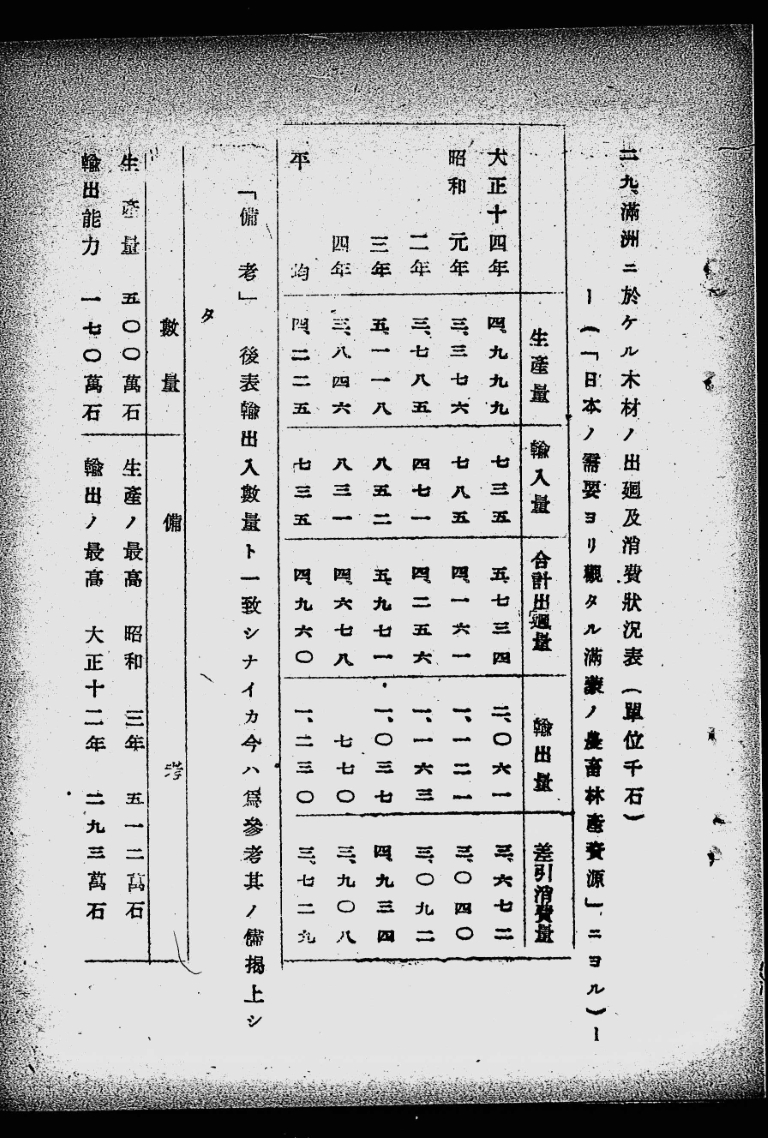 二九、滿洲ニ於ケル木材ノ出廻及消費狀況表(單位千石)
ー(「日本ノ需要ヨリ觀タル滿蒙ノ農畜林產資源」ニヨル)ー
生產量 輸入量 合計出廻量 輸出量 差引消費量
大正十四年 四、九九九 七三五 五、七三四 二、〇六一 三、六七二
昭和元年 三、三七六 七八五 四、一六一 一、一二一 三、〇四〇
二年 三、七八五 四七一 四、二五六 一、一六三 三、〇九二
三年 五、一一八 八五二 五、九七一 一、〇三七 四、九三四
四年 三、八四六 八三一 四、六七八 七七〇 三、九〇八
平均 四、二二五 七三五 四、九六〇 一、二三〇 三、七二九
「備考」 後表輸出入數量ト一致シナイカ今ハ爲參考其ノ儘揭上シ
タ
數量 備考
生產量 五〇〇萬石 生產ノ最高 昭和三年 五一二萬石
輸出能力 一七〇萬石 輸出ノ最高 大正十二年 二九三萬石